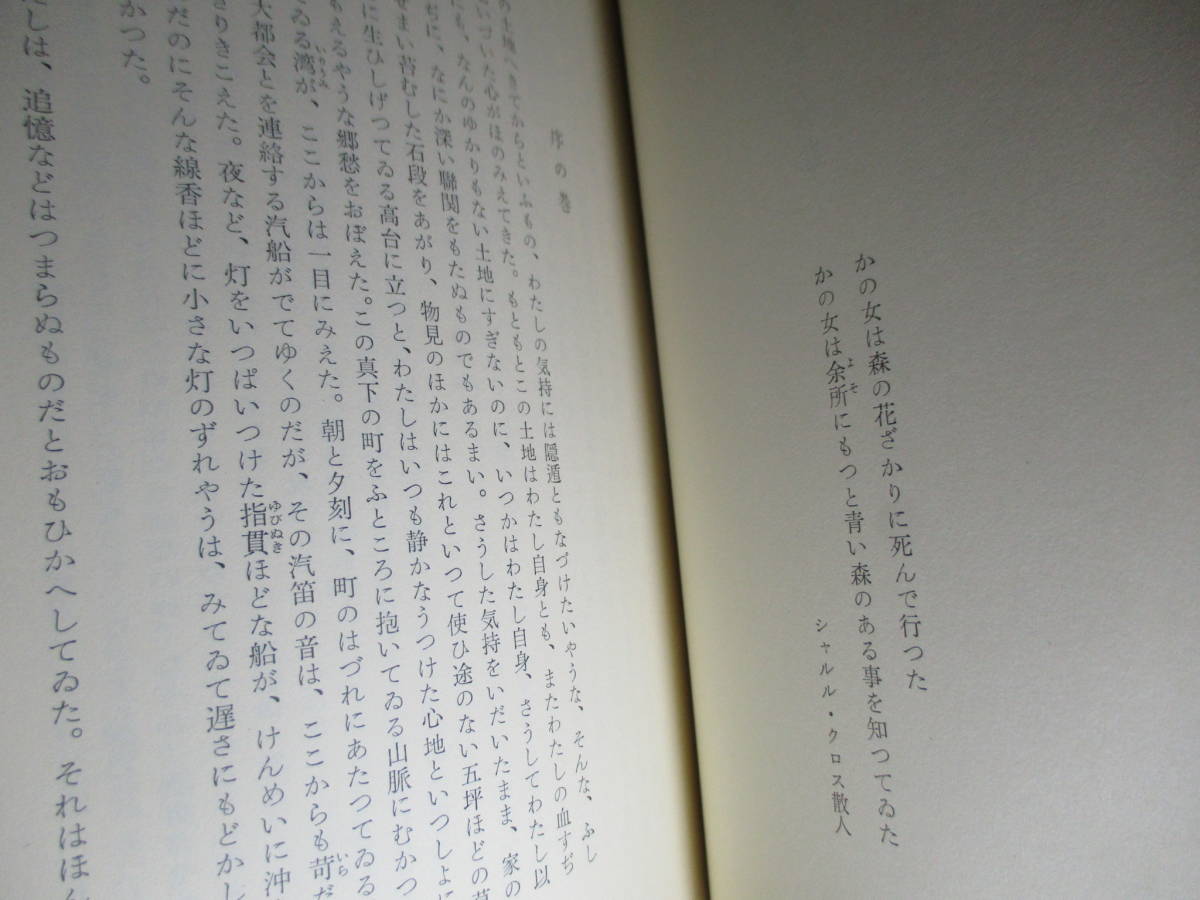 かの女は森の花ざかりに死んで行つた
かの女は余所にもつと青い森のある事を知つてゐた
よそ
シャルル・クロス散人
序の巻
の土地へきてからといふもの、わたしの気持には隠遁ともなづけたいやうな、そんな、ふし
いづいた心がほのみえてきた。もともとこの土地はわたし自身とも、またわたしの血すぢ
にも、なんのゆかりもない土地にすぎないのに、いつかはわたし自身、さうしてわたし以
に、なにか深い聯関をもたぬものでもあるまい。さうした気持をいだいたまま、家の
せまい苔むした石段をあがり、物見のほかにはこれといつて使ひ途のない五坪ほどの草
に生ひしげつてゐる高台に立つと、わたしはいつも静かなうつけた心地といつしよに
もえるやうな郷愁をおぼえた。この真下の町をふところに抱いてゐる山脈にむかつ
てゐる湾が、ここからは一目にみえた。朝と夕刻に、町のはづれにあたつてゐる
いりうみ
大都会とを連絡する汽船がでてゆくのだが、その汽笛の音は、ここからも苛だ
いら
きりきこえた。夜など、灯をいつぱいつけた指貫ほどな船が、けんめいに沖
ゆびぬき
だのにそんな線香ほどに小さな灯のずれやうは、みてゐて遅さにもどかし
かつた。
たしは、追憶などはつまらぬものだとおもひかへしてゐた。それはほん